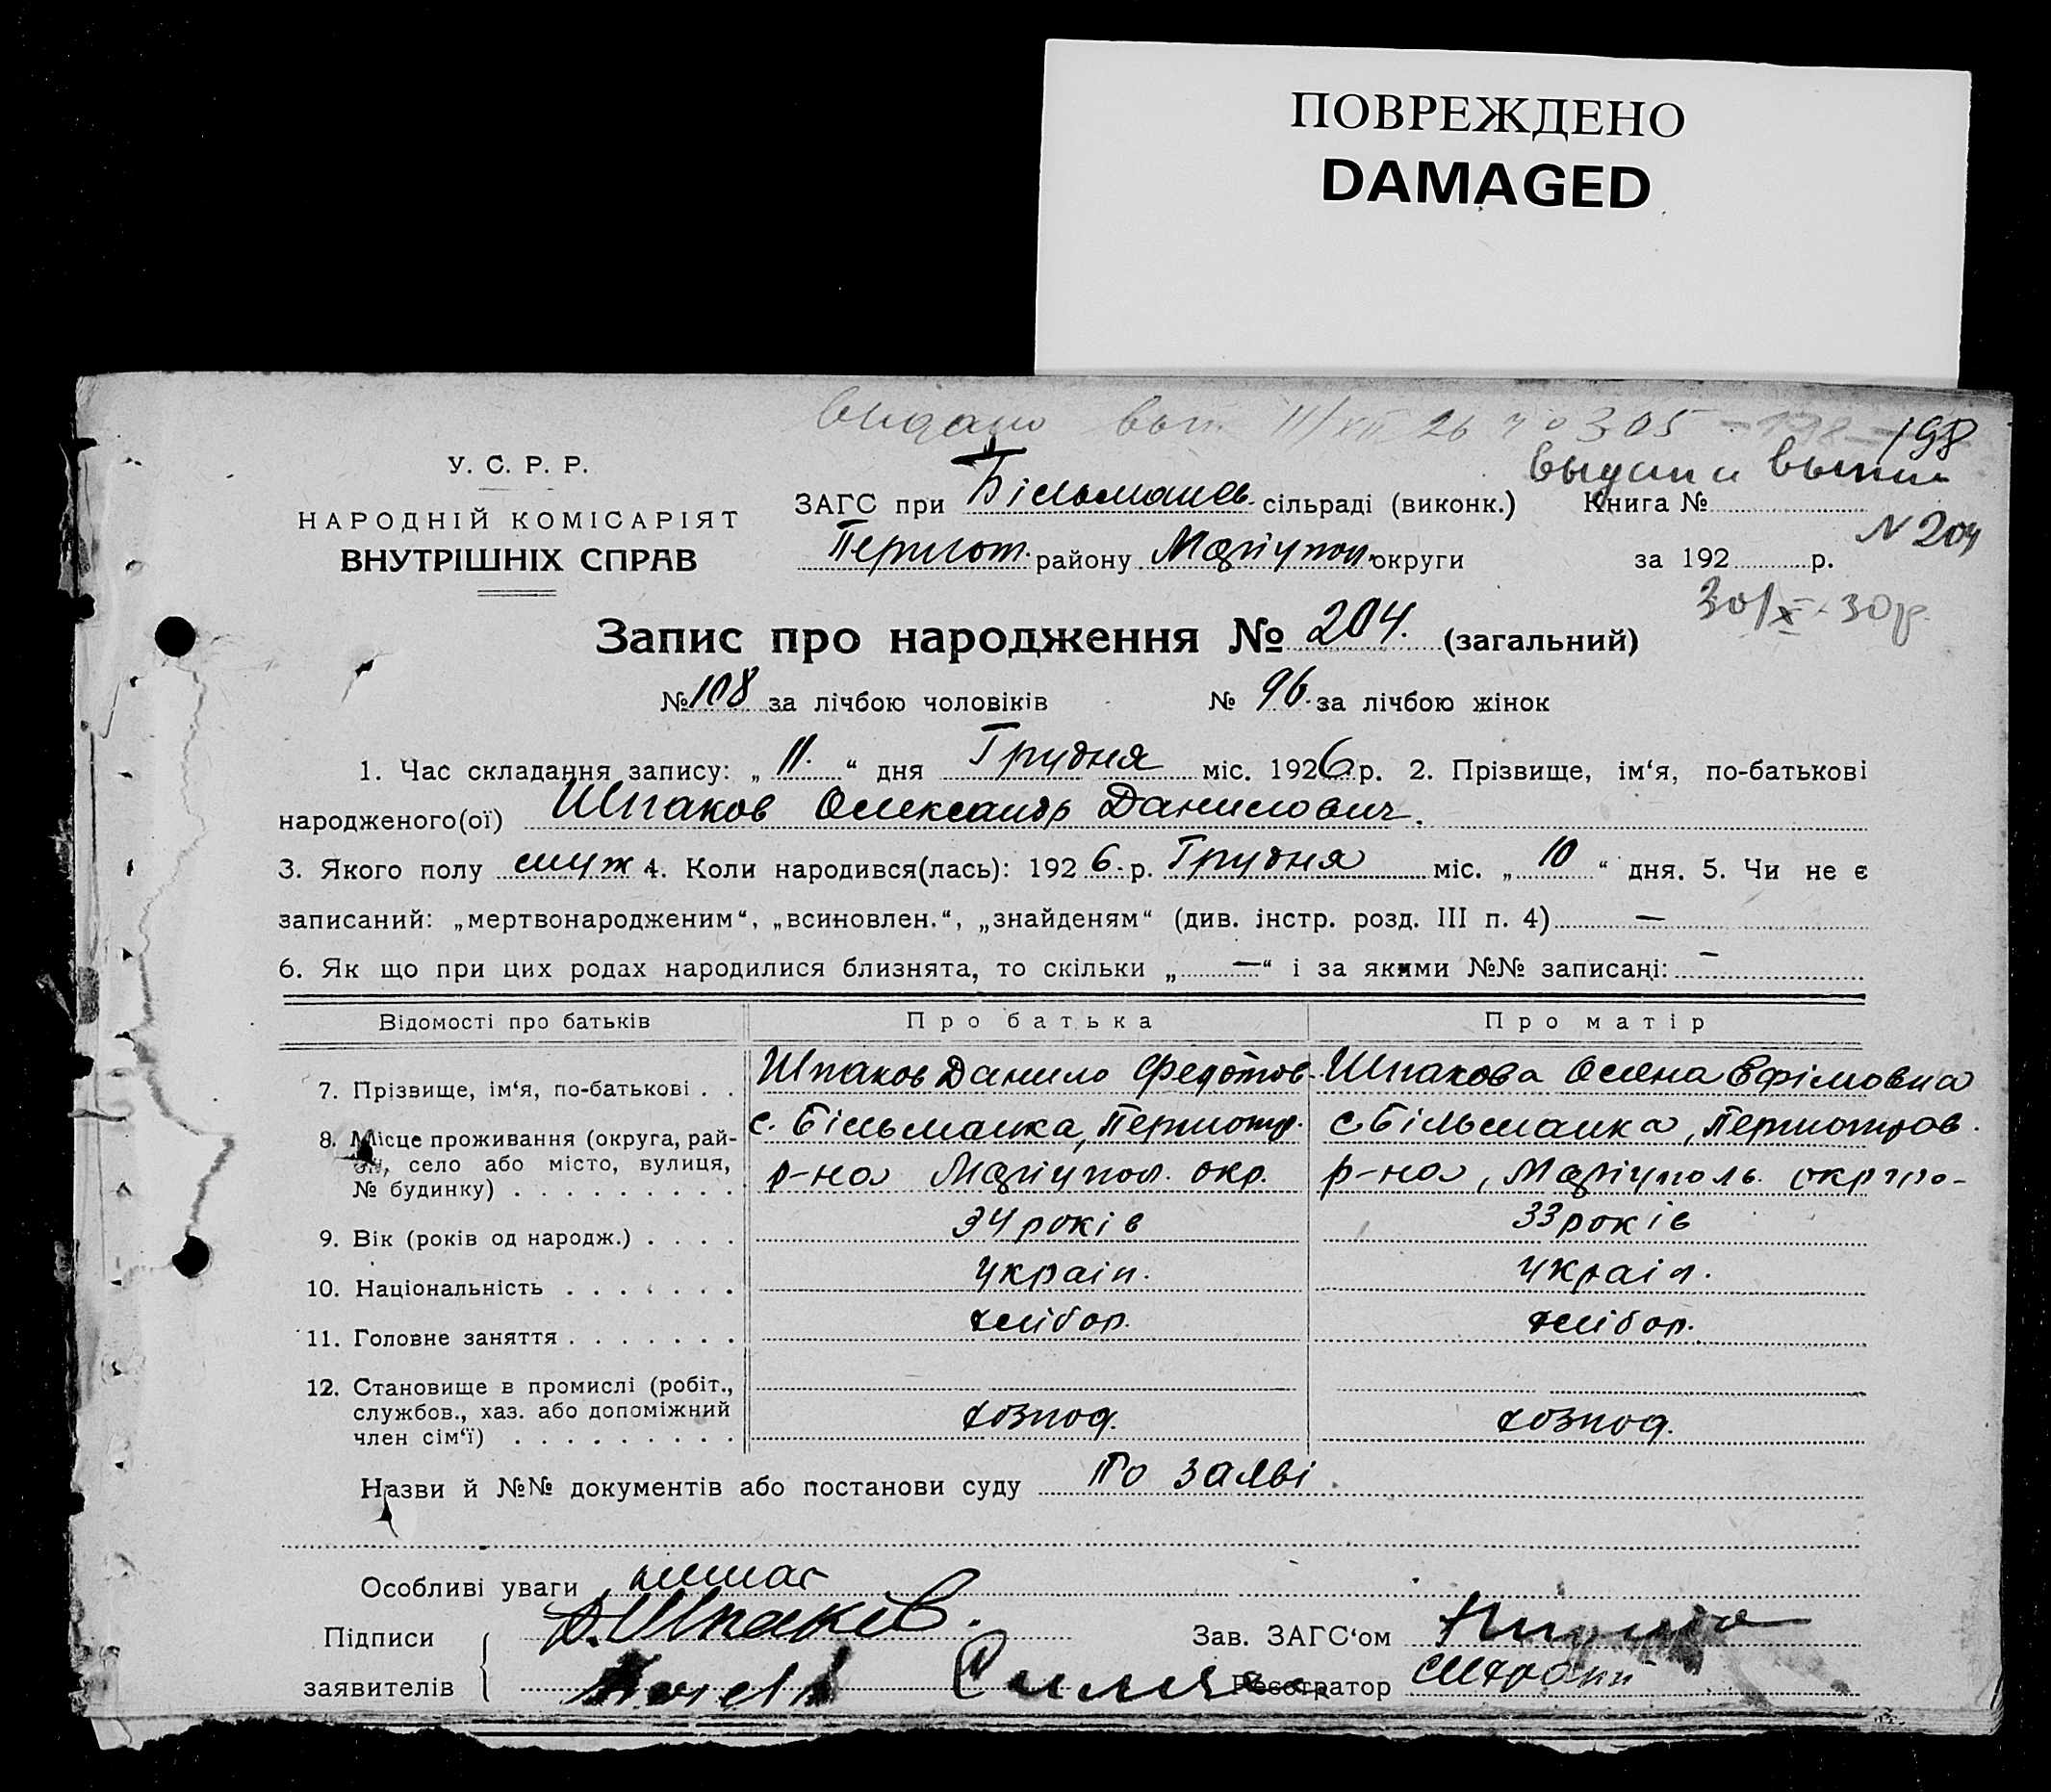 ПОВРЕЖДЕНО
DAMAGED
видано вып. 11/XII 26 № 305 198
У. С. Р. Р.
НАРОДНІЙ КОМІСАРІЯТ
ВНУТРІШНІХ СПРАВ
ЗАГС при Більмансь. сільраді (виконк.)
Першот. району Маріупол. округи
Книга №
№ 204
за 192 р.
30/X 30р.
Запис про народження № 204. (загальний)
№ 108 за лічбою чоловіків № 96. за лічбою жінок
1. Час складання запису: „ 11. “ дня Грудня міс. 1926 р. 2. Прізвище, ім‘я, по-батькові
народженого(ої) Шпаков Олександр Данилович.
3. Якого полу муж 4. Коли народився(лась): 1926 р. Грудня міс. „ 10 “ дня. 5. Чи не є
записаний: „мертвонародженим“, „всиновлен.“, „знайденям“ (див. інстр. розд. III п. 4) —
6. Як що при цих родах народилися близнята, то скільки „ — “ і за якими №№ записані: —
Відомості про батьків Про батька Про матір
7. Прізвище, ім‘я, по-батькові . . Шпаков Данило Федотов. Шпакова Олена Єфімовна
8. Місце проживання (округа, рай- с. Більманка, Першотр. с. Більманка, Першотров.
он, село або місто, вулиця,
№ будинку) р-на Маріупол. окр. р-на, Маріуполь.
9. Вік (років од народж.) . . . . 34 років 33 років
10. Національність . . . . . . . україн. україн.
11. Головне заняття . . . . . . . хлібор. хлібор.
12. Становище в промислі (робіт.,
службов., хаз. або допоміжний
член сім‘ї) . . . . . . . . . хозпод. хозпод.
Назви й №№ документів або постанови суду По заяві
Особливі уваги немає
Підписи Д. Шпаків. Зав. ЗАГС‘ом
заявителів Реєстратор